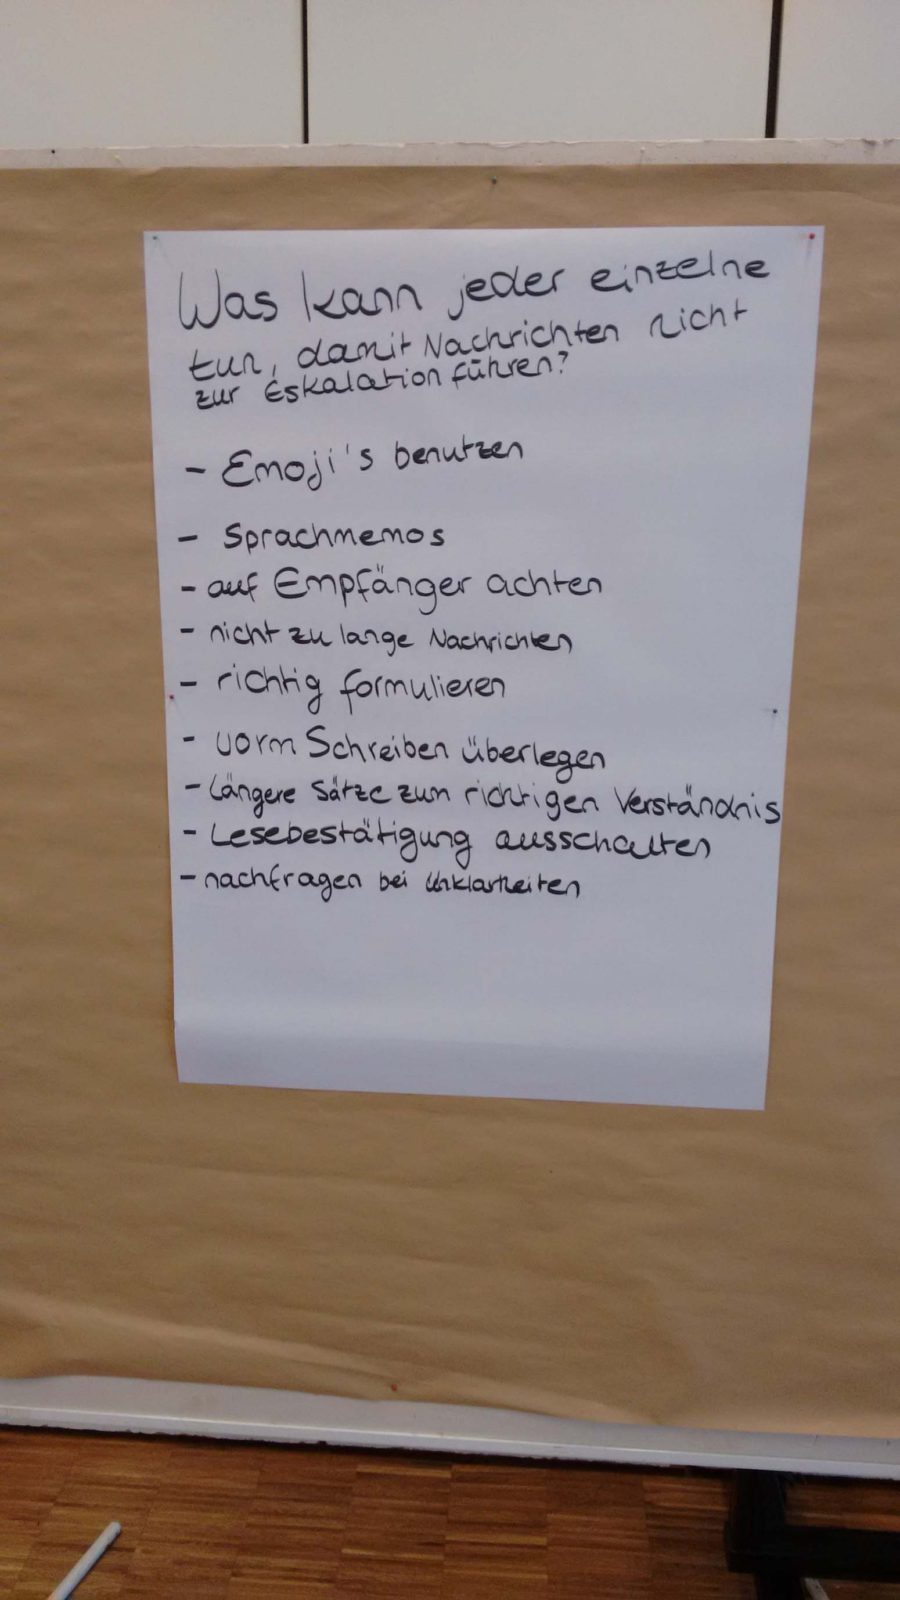 Was kann jeder einzelne
tun, damit Nachrichten nicht
zur Eskalation führen?
- Emoji's benutzen
- Sprachmemos
- auf Empfänger achten
- nicht zu lange Nachrichten
- richtig formulieren
- vorm Schreiben überlegen
- längere Sätze zum richtigen Verständnis
- Lesebestätigung ausschalten
- nachfragen bei Unklarheiten